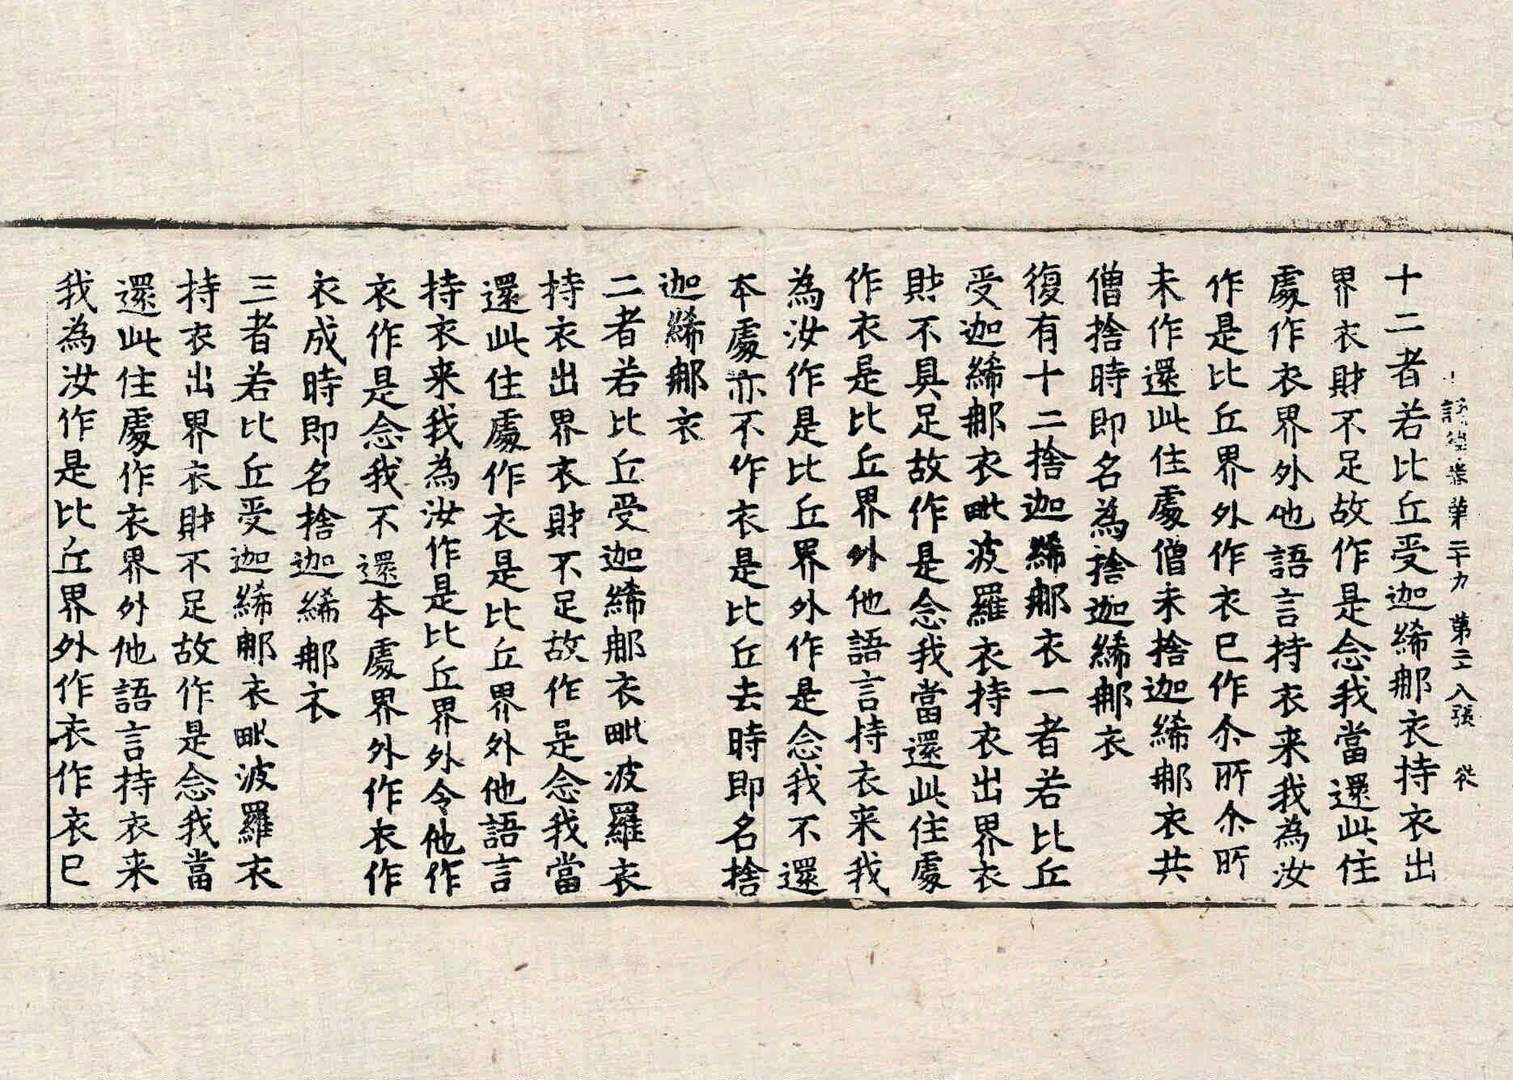 十誦律卷第二十九 第二八張 從
十二者若比丘受迦絺那衣持衣出
界衣財不足故作是念我當還此住
處作衣界外他語言持衣来我為汝
作是比丘界外作衣巳作尒所尒所
未作還此住處僧未捨迦絺那衣共
僧捨時即名為捨迦絺那衣
復有十二捨迦絺那衣一者若比丘
受迦絺那衣毗波羅衣持衣出界衣
財不具足故作是念我當還此住處
作衣是比丘界外他語言持衣来我
為汝作是比丘界外作是念我不還
本處亦不作衣是比丘去時即名捨
迦絺那衣
二者若比丘受迦絺那衣毗波羅衣
持衣出界衣財不足故作是念我當
還此住處作衣是比丘界外他語言
持衣来我為汝作是比丘界外令他作
衣作是念我不還本處界外作衣作
衣成時即名捨迦絺那衣
三者若比丘受迦絺那衣毗波羅衣
持衣出界衣財不足故作是念我當
還此住處作衣界外他語言持衣来
我為汝作是比丘界外作衣作衣巳